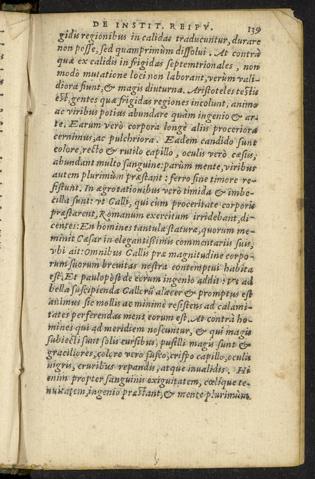 DE INSTIT. REIPV. 139
gidis regionibus in calidas traducuntur, durare
non posse, sed quamprimùm dissolui. At contrà
quæ ex calidis in frigidas septemtrionales, non
modò mutatione loci non laborant, verùm vali-
diora fiunt, & magis diuturna. Aristoteles testis
est, gentes quæ frigidas regiones incolunt, animo
ac viribus potius abundare quàm ingenio & ar-
te. Earum verò corpora longè aliis proceriora
cernimus, ac pulchriora. Eadem candido sunt
colore, recto & rutilo capillo, oculis verò cæsiis,
abundant multo sanguine: parùm mente, viribus
autem plurimùm præstant: ferro sine timore re-
sistunt. In ægrotationibus verò timida & imbe-
cilla sunt: vt Galli, qui cùm proceritate corporis
præstarent, Romanum exercitum irridebant, di-
centes: En homines tantulæ staturæ, quorum me-
minit Cæsar in elegantissimis commentariis suis,
vbi ait: Omnibus Gallis præ magnitudine corpo-
rum suorum breuitas nostra contemptui habita
est. Et paulopòst de eorum ingenio addit: vt ad
bella suscipienda Gallorū alacer & promptus est
animus sic mollis ac minimè resistens ad calami-
tates perferendas mens eorum est. At contrà ho-
mines qui ad meridiem noscuntur, & qui magis
subiecti sunt solis cursibus, pusilli magis sunt &
graciliores, colore verò fusco, crispo capillo, oculis
nigris, cruribus repandis, atque inualidis. Hi
enim propter sanguinis exiguitatem, cœlique te-
nuitatem, ingenio præstant, & mente plurimùm.